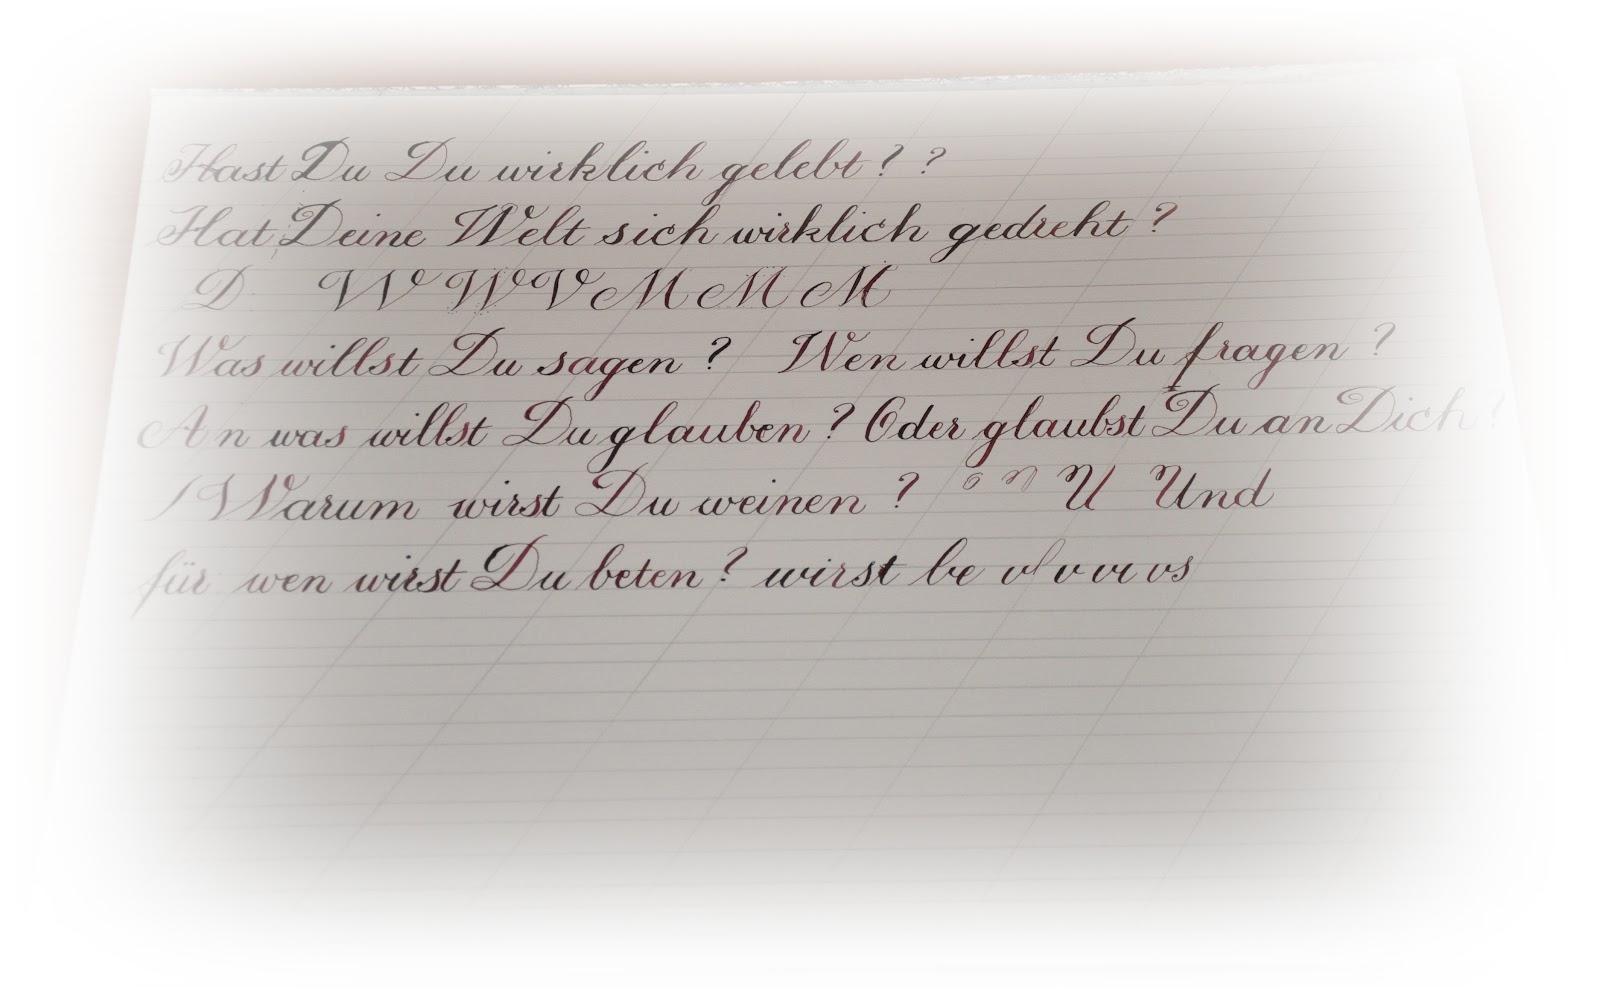 Hast Du Du wirklich gelebt? ?
Hat Deine Welt sich wirklich gedreht?
D W W V M M M
Was willst Du sagen? Wen willst Du fragen?
An was willst Du glauben? Oder glaubst Du an Dich?
Warum wirst Du weinen? U Und
für wen wirst Du beten? wirst be v v vs